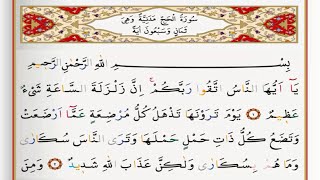 سُورَةُ الْحَجِّ مَدَنِيَّةٌ وَهِيَ
ثَمَانٍ وَسَبْعُونَ اٰيَةً
بِسْــمِ اللّٰهِ الرَّحْمٰنِ الرَّحٖيمِ
يَٓا اَيُّهَا النَّاسُ اتَّقُوا رَبَّكُمْۚ اِنَّ زَلْزَلَةَ السَّاعَةِ شَيْءٌ
عَظٖيمٌ ۝١ يَوْمَ تَرَوْنَهَا تَذْهَلُ كُلُّ مُرْضِعَةٍ عَمَّٓا اَرْضَعَتْ
وَتَضَعُ كُلُّ ذَاتِ حَمْلٍ حَمْلَهَا وَتَرَى النَّاسَ سُكَارٰى
وَمَا هُمْ بِسُكَارٰى وَلٰكِنَّ عَذَابَ اللّٰهِ شَدٖيدٌ ۝٢ وَمِنَ